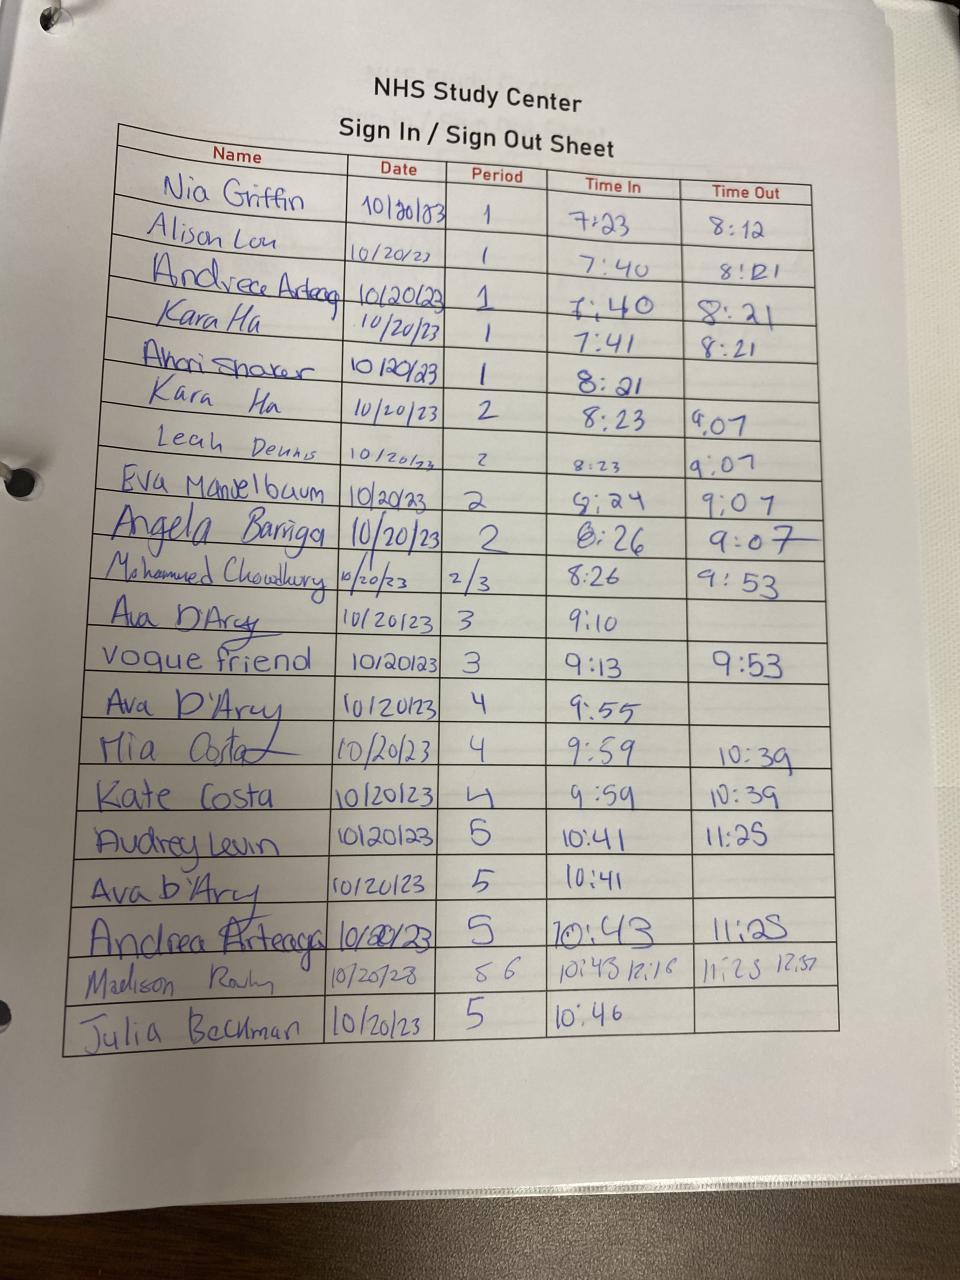 NHS Study Center
Sign In / Sign Out Sheet
Name Date Period Time In Time Out
Nia Griffin 10/20/23 1 7:23 8:12
Alison Lou 10/20/23 1 7:40 8:21
Andrea Arteag 10/20/23 1 7:40 8:21
Kara Ha 10/20/23 1 7:41 8:21
10/20/23 1 8:21
Kara Ha 10/20/23 2 8:23 9:07
Leah Dennis 10/20/23 2 8:23 9:07
Eva Mandelbaum 10/20/23 2 8:24 9:07
Angela Barriga 10/20/23 2 8:26 9:07
Mohammed Chowdhury 10/20/23 2/3 8:26 9:53
Ava D'Arcy 10/20/23 3 9:10
Vogue friend 10/20/23 3 9:13 9:53
Ava D'Arcy 10/20/23 4 9:55
Mia Costa 10/20/23 4 9:59 10:39
Kate Costa 10/20/23 4 9:59 10:39
Audrey Levin 10/20/23 5 10:41 11:25
Ava D'Arcy 10/20/23 5 10:41
Andrea Arteaga 10/20/23 5 10:43 11:25
Madison 10/20/23 5 6 10:43 12:16 11:25 12:57
Julia Beckman 10/20/23 5 10:46